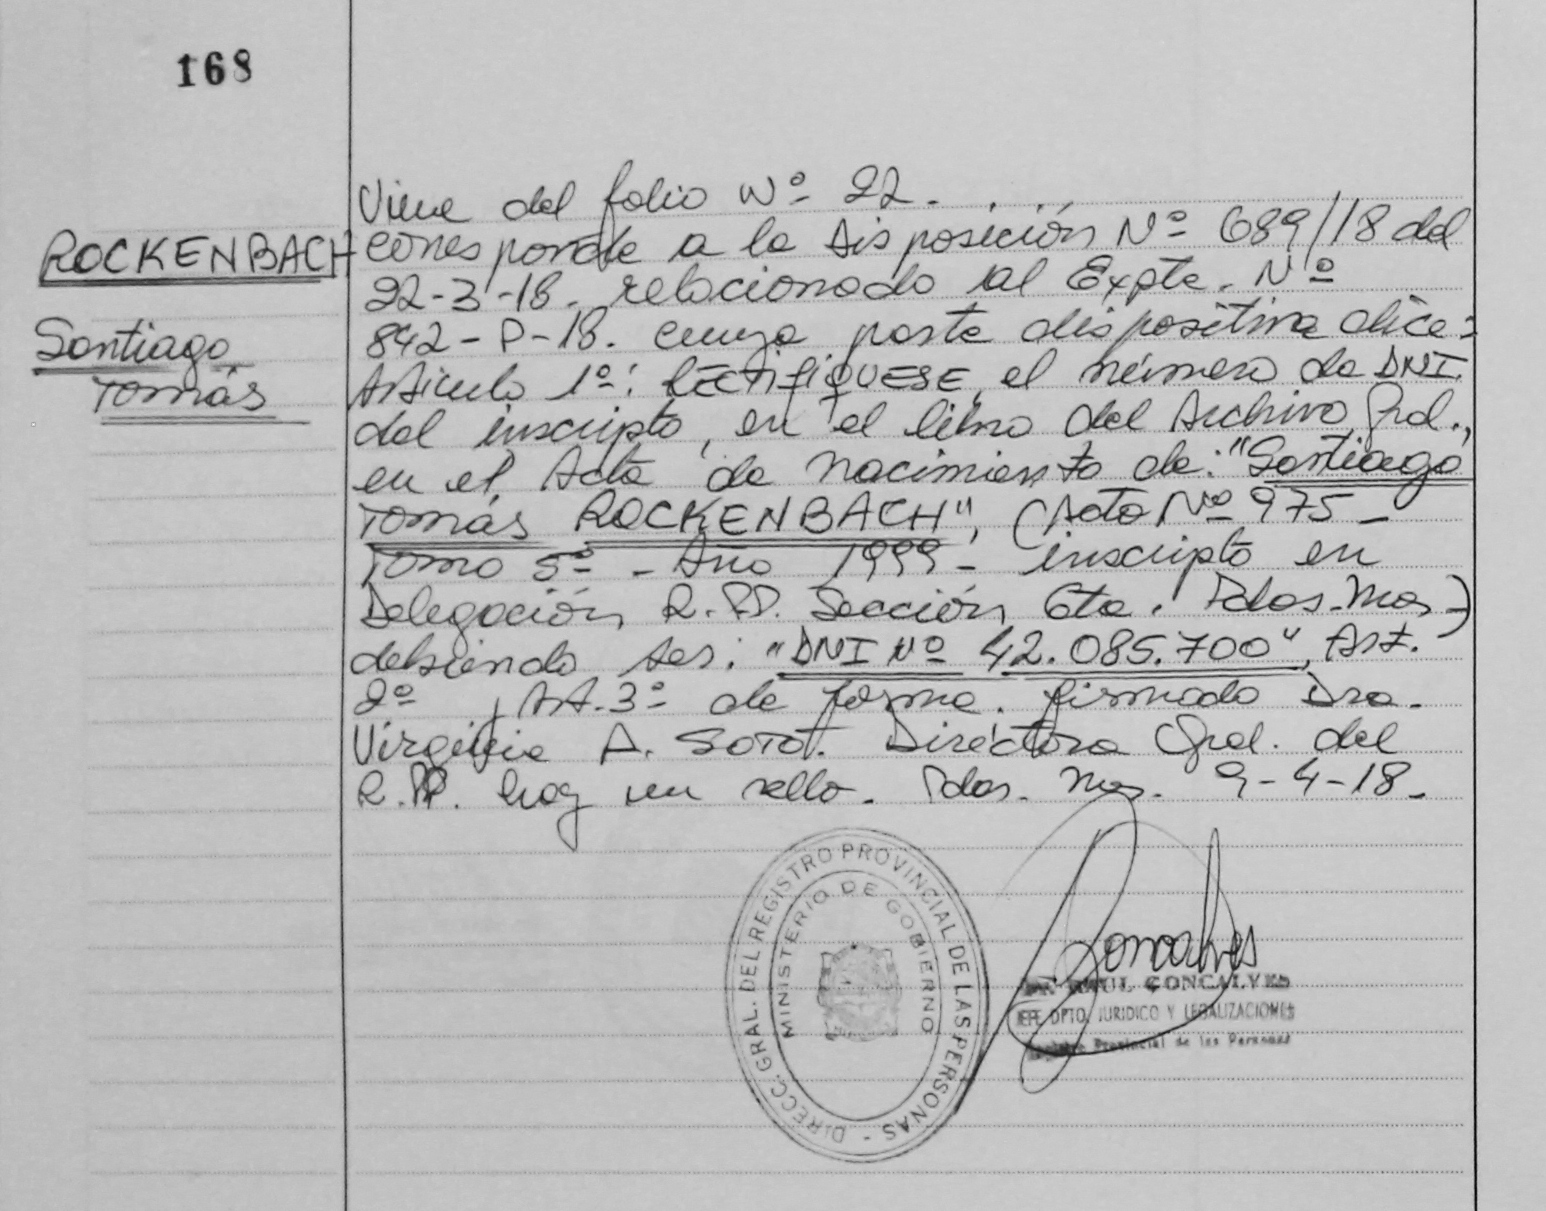 168
Viene del folio Nº 22.
ROCKENBACH
Santiago
Tomás
corresponde a la disposición Nº 689/18 del
22-3-18. relacionado al Expte. Nº
842-P-18. cuya parte dispositiva dice:
Artículo 1º: RECTIFIQUESE, el número de DNI
del inscripto, en el libro del Archivo Gral.,
en el Acta de nacimiento de: "Santiago
Tomás ROCKENBACH", (Acta Nº 975 -
Tomo 5º - Año 1999 - inscripto en
Delegación R.PP. Sección 6ta. Pdas. Mnes.)
debiendo ser: "DNI Nº 42.085.700", Art.
2º, Art. 3º de forma. firmado Dra.
Virginia A. Directora Gral. del
R.PP. hay un sello. Pdas. Mnes. 9-4-18.
DIRECC. GRAL. DEL REGISTRO PROVINCIAL DE LAS PERSONAS -
MINISTERIO DE GOBIERNO
Goncalves
RAUL GONCALVES
JEFE DPTO. JURIDICO Y LEGALIZACIONES
Provincial de las Personas